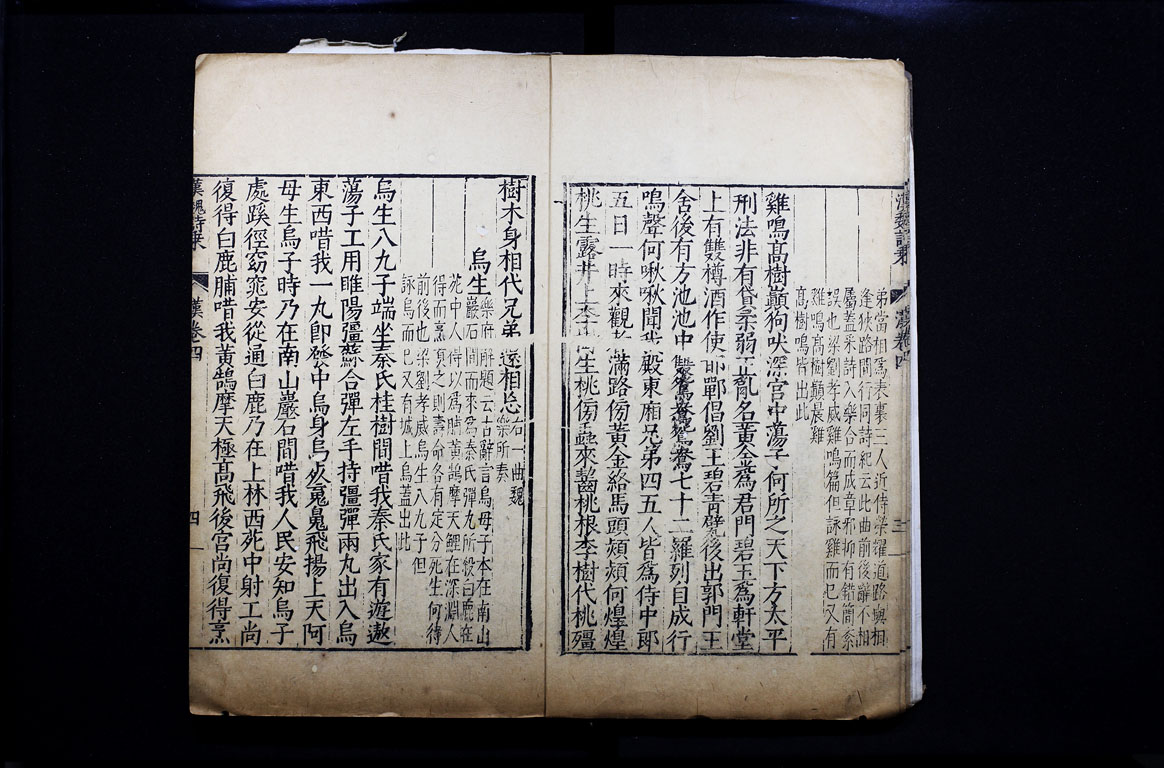 弟當相爲表裏三人近侍榮耀道路與相
逢狹路間行同詩紀云此曲前後辭不相
屬蓋采詩入樂合而成章邪抑有錯簡紊
誤也梁劉孝威雞鳴篇但詠雞而已又有
雞鳴高樹巔晨雞
高樹鳴皆出此
雞鳴高樹巔狗吠深宮中蕩子何所之天下方太平
刑法非有貸柔弱正亂名黃金爲君門碧玉爲軒堂
上有雙樽酒作使邯鄲倡劉王碧青甓後出郭門王
舍後有方池池中雙鴛鴦鴛鴦七十二羅列自成行
鳴聲何啾啾聞我殿東廂兄弟四五人皆爲侍中郎
五日一時來觀者滿路傍黃金絡馬頭熲熲何煌煌
桃生露井上李生桃傍蟲來齧桃根李樹代桃殭
樹木身相代兄弟還相忘右一曲魏
樂所奏
烏生
樂府解題云古辭言烏母子本在南山
巖石間而來爲秦氏彈丸所殺白鹿在
苑中人得以爲脯黃鵠摩天鯉在深淵人
得而烹煮之則壽命各有定分死生何待
前後也梁劉孝威烏生八九子但
詠烏而已又有城上烏蓋出此
烏生八九子端坐秦氏桂樹間唶我秦氏家有遊遨
蕩子工用睢陽彊蘇合彈左手持彊彈兩丸出入烏
東西唶我一丸即發中烏身烏死魂魄飛揚上天阿
母生烏子時乃在南山巖石間唶我人民安知烏子
處蹊徑窈窕安從通白鹿乃在上林西苑中射工尚
復得白鹿脯唶我黃鵠摩天極高飛後宮尚復得烹
漢魏詩乘
漢卷四
四